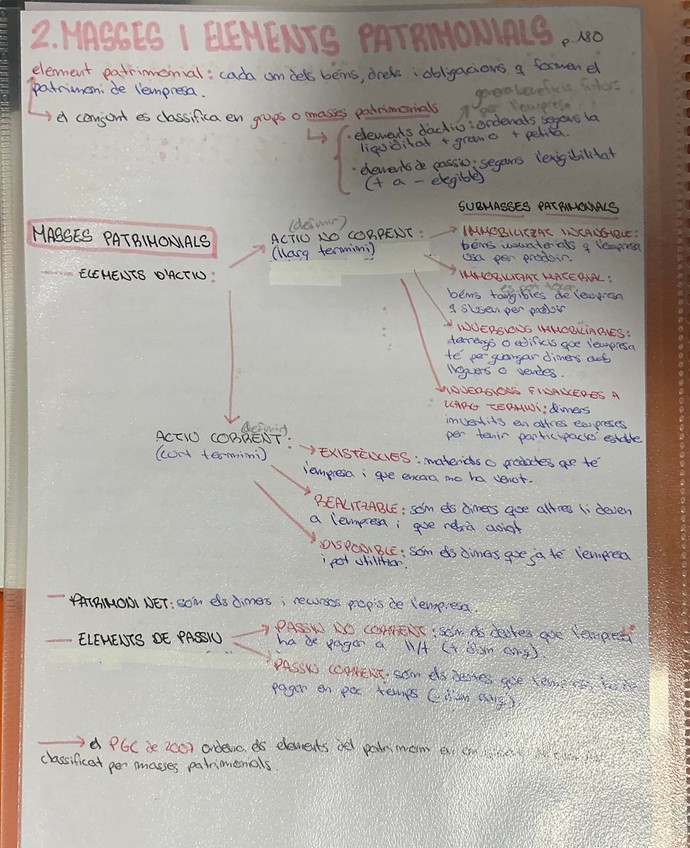 2. MASSES I ELEMENTS PATRIMONIALS p.180
element patrimonial: cada un dels béns, drets i obligacions q formen el
patrimoni de l'empresa.
genera beneficis futurs
per l'empresa
el conjunt es classifica en grups o masses patrimonials
· elements d'actiu: ordenats segons la
liquiditat + gran o + petita.
· elements de passiu: segons l'exigibilitat
(+ a - elegible)
SUBMASSES PATRIMONIALS
MASSES PATRIMONIALS
ELEMENTS D'ACTIU:
(definir)
ACTIU NO CORRENT:
(llarg termini)
IMMOBILITZAT INTANGIBLE:
béns immaterials q l'empresa
usa per produir.
IMMOBILITZAT MATERIAL:
es pot tocar
béns tangibles de l'empresa
q s'usen per produir
INVERSIONS IMMOBILIÀRIES:
terrenys o edificis que l'empresa
té per guanyar diners amb
lloguers o vendes.
INVERSIONS FINANCERES A
LLARG TERMINI: diners
invertits en altres empreses
per tenir participació estable
(definir)
ACTIU CORRENT:
(curt termini)
EXISTÈNCIES: materials o productes que té
l'empresa i que encara no ha venut.
REALITZABLE: són els diners que altres li deuen
a l'empresa i que rebrà aviat
DISPONIBLE: són els diners que ja té l'empresa
i pot utilitzar.
PATRIMONI NET: són els diners i recursos propis de l'empresa.
ELEMENTS DE PASSIU
PASSIU NO CORRENT: són els deutes que l'empresa
ha de pagar a ll/t (+ d'un any).
PASSIU CORRENT: són els deutes que l'empresa ha de
pagar en poc temps (- d'un any).
el PGC de 2007 ordena els elements del patrimoni en un
classificat per masses patrimonials.